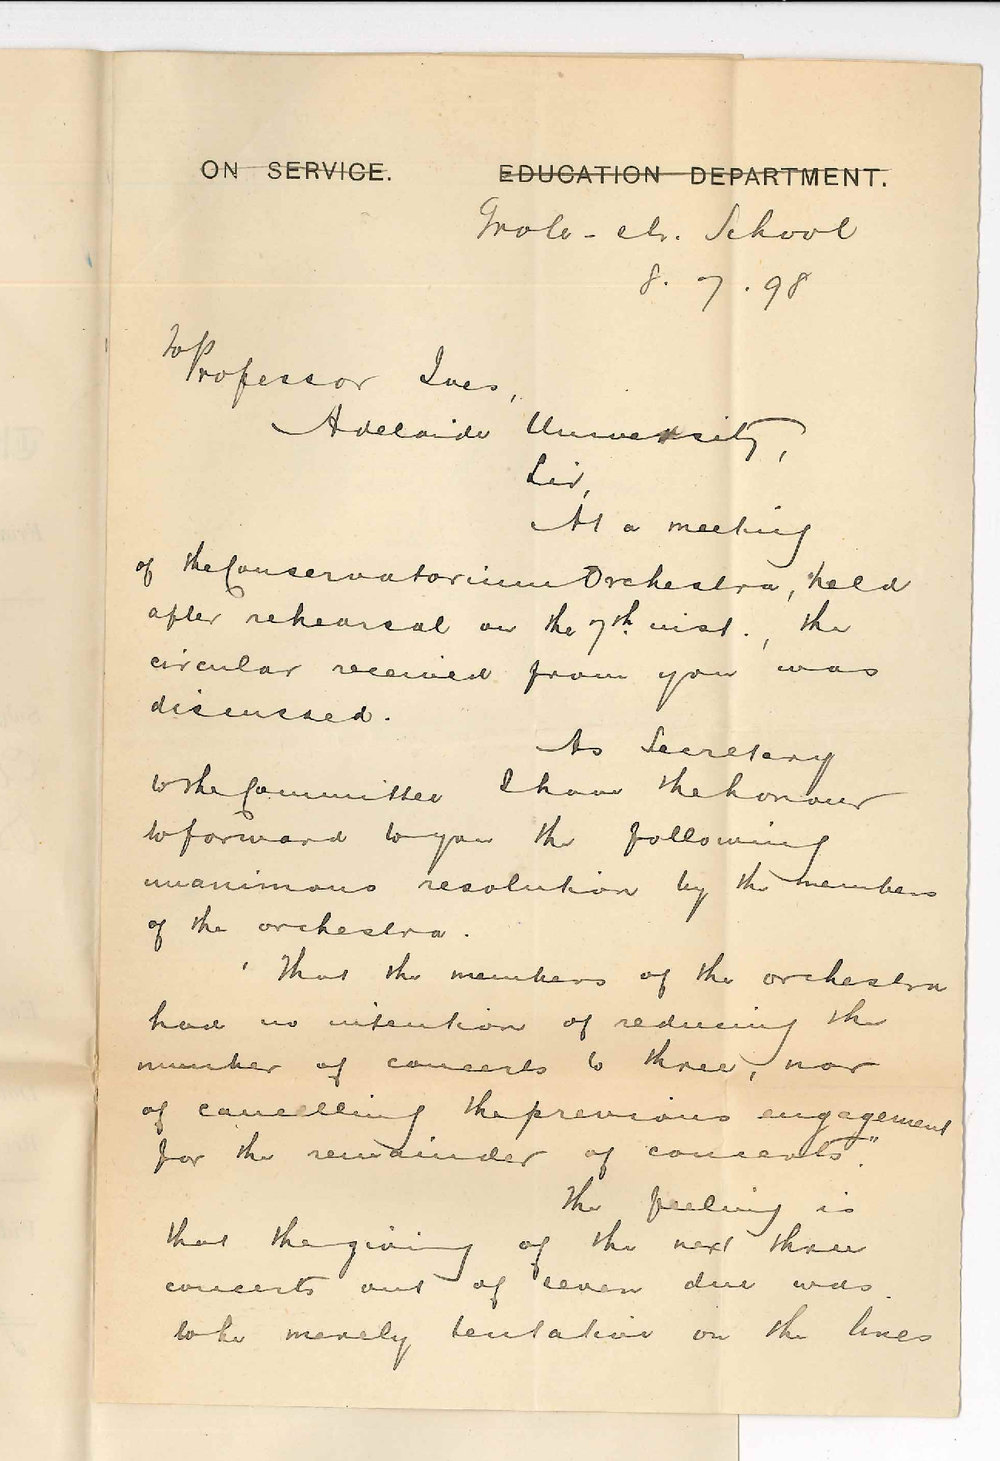 ON SERVICE. EDUCATION DEPARTMENT.
Grote-str. School
8. 7. 98
To Professor Ives,
Adelaide University,
Sir,
At a meeting
of the Conservatorium Orchestra, held
after rehearsal on the 7th. inst., the
circular received from you was
discussed.
As Secretary
to the Committee I have the honour
to forward to you the following
unanimous resolution by the members
of the orchestra.
' That the members of the orchestra
had no intention of reducing the
number of concerts to three, nor
of cancelling the previous engagement
for the remainder of concerts."
The feeling is
that the giving of the next three
concerts out of seven due was
to be merely tentative on the lines